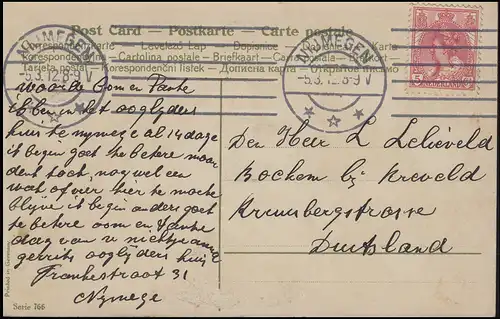 Post Card - Postkarte - Carte postale
Correspondenzkarte - Levelező Lap - Dopisnice
Korespondenční - Cartolina postale - Briefkaart - Brefkort
Tarjeta postal - Korespondenční lístek - Дописна карта - Открытое письмо
NIJMEGEN
5.3.12.8-9 V
NIJMEGEN
5.3.12.8-9 V
NEDERLAND
5
waarde Oom en Tante
ik ben in het ooglijders
huis te nymege al 14 dage
it begin goet te betere maar
denk toch nog wel een
wat of vier hier te moete
blijve it begin anders goet
te betere oom en tante
dag van u nichtje anna
gerrits ooglijders huis
Frankestraat 31
Nymege
Den Heer L Lelieveld
Bochem bij Kreveld
Kreuzbergstrosse
Duitsland
Printed in Germany
Serie 766